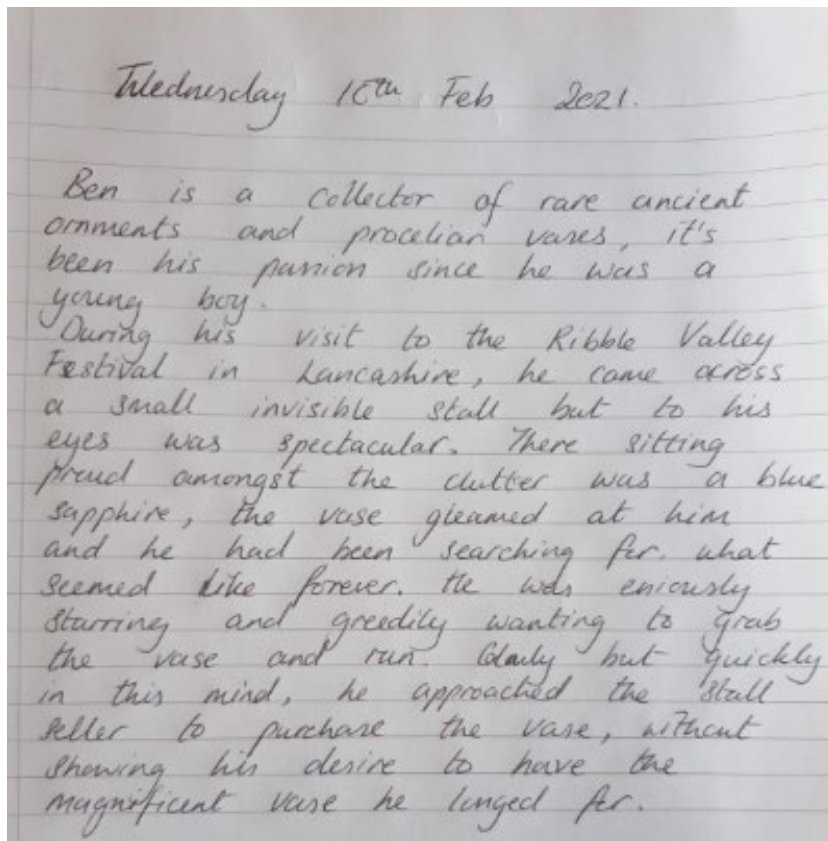 Wednesday 10th Feb 2021.
Ben is a collector of rare ancient
ornments and procelian vases, it's
been his passion since he was a
young boy.
During his visit to the Ribble Valley
Festival in Lancashire, he came across
a small invisible stall but to his
eyes was spectacular. There sitting
proud amongst the clutter was a blue
sapphire, the vase gleamed at him
and he had been searching for. what
seemed like forever. He was eniously
starring and greedily wanting to grab
the vase and run. but quickly
in this mind, he approached the stall
seller to purchase the vase, without
showing his desire to have the
magnificent vase he longed for.